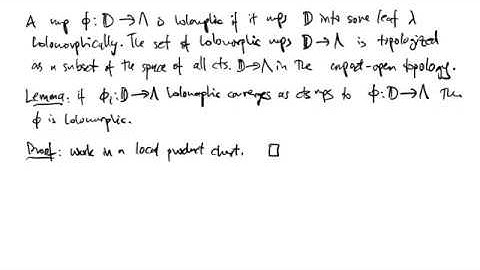 A map ϕ: 𝔻 → Λ is holomorphic if it maps 𝔻 into some leaf λ
holomorphically. The set of holomorphic maps 𝔻 → Λ is topologized
as a subset of the space of all cts. 𝔻 → Λ in the compact-open topology.
Lemma: if ϕᵢ: 𝔻 → Λ holomorphic converges as cts maps to ϕ: 𝔻 → Λ then
ϕ is holomorphic.
Proof: work in a local product chart. □